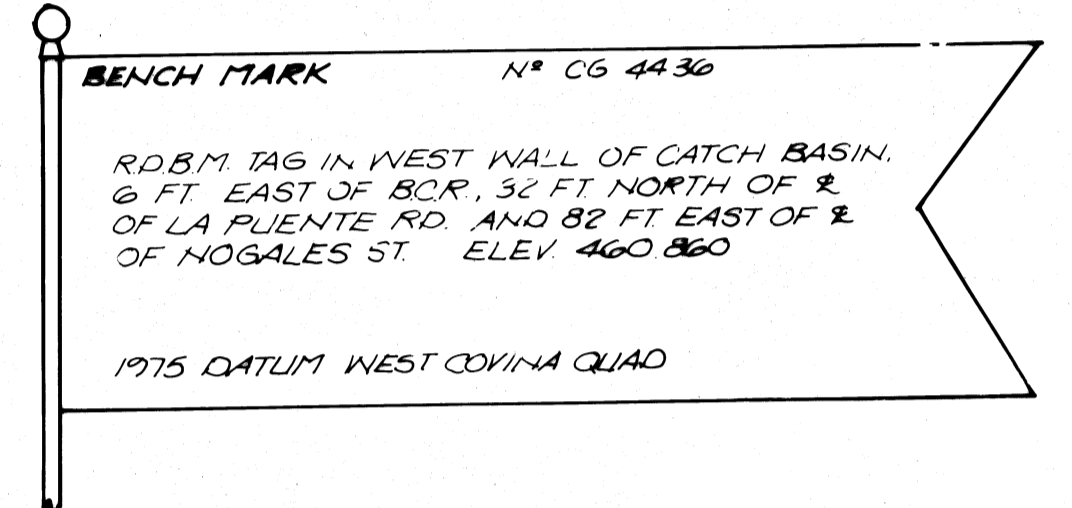 BENCH MARK Nº CG 4436
R.D.B.M. TAG IN WEST WALL OF CATCH BASIN.
6 FT. EAST OF B.C.R., 32 FT. NORTH OF ℄
OF LA PUENTE RD. AND 82 FT. EAST OF ℄
OF NOGALES ST. ELEV. 460.860
1975 DATUM WEST COVINA QUAD